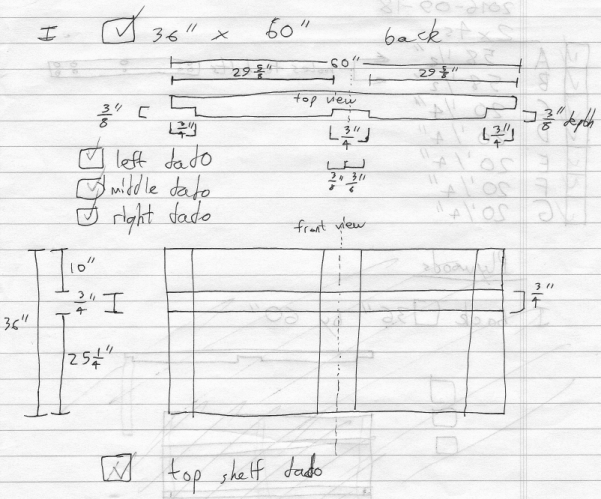 I ☑ 36" x 60" back
60"
29 5/8" 29 5/8"
top view
3/8" 3/8" depth
3/4" 3/4" 3/4"
☑ left dado
3/8" 3/8"
☑ middle dado
☑ right dado
front view
10"
3/4" 3/4"
36"
25 1/4"
☑ top shelf dado